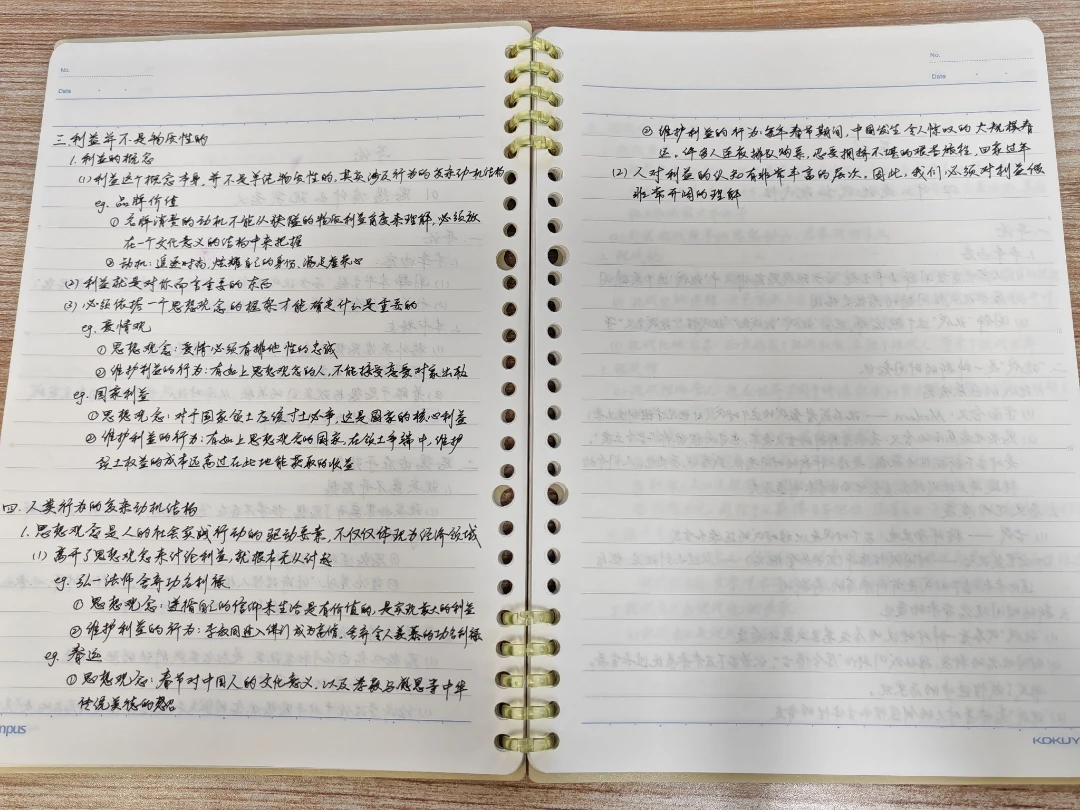 No.
Date
三.利益并不是物质性的
1.利益的概念
(1)利益这个概念本身,并不是单纯物质性的,其实涉及行为的复杂动机结构
eg. 品牌价值
① 名牌消费的动机不能从狭隘的物质利益角度来理解,必须放
在一个文化意义的结构中来把握
② 动机:追逐时尚,炫耀自己的身份、满足虚荣心
(2) 利益就是对你而言重要的东西
(3) 必须依据一个思想观念的框架才能确定什么是重要的
eg. 爱情观
① 思想观念:爱情必须有排他性的忠诚
② 维护利益的行为:有如上思想观念的人,不能接受恋爱对象出轨
eg. 国家利益
① 思想观念:对于国家领土应该寸土必争,这是国家的核心利益
② 维护利益的行为:有如上思想观念的国家,在领土争端中,维护
领土权益的成本远高过在此地能获取的收益
四.人类行为的复杂动机结构
1.思想观念是人的社会实践行动的驱动要素,不仅仅体现为经济领域
(1) 离开了思想观念来讨论利益,就根本无从讨起
eg. 弘一法师舍弃功名利禄
① 思想观念:遵循自己的信仰来生活是有价值的,是实现最大的利益
② 维护利益的行为:李叔同进入佛门成为高僧,舍弃令人羡慕的功名利禄
eg. 春运
① 思想观念:春节对中国人的文化意义,以及孝敬与感恩等中华
传统美德的
mpus
No.
Date
② 维护利益的行为:每年春节期间,中国发生令人惊叹的大规模春
运,许多人连夜排队购票,忍受拥挤不堪的艰苦旅程,回家过年
(2) 人对利益的认知有非常丰富的层次,因此,我们必须对利益做
非常开阔的理解
KOKUY